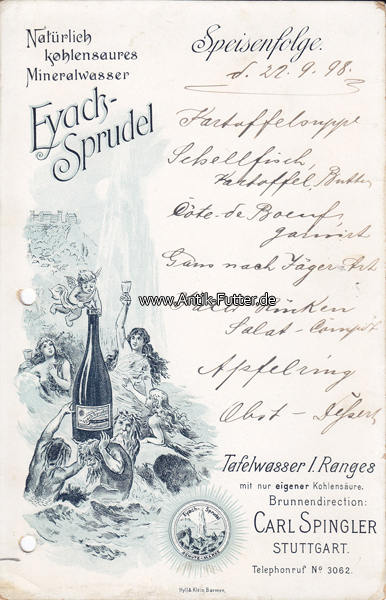 Natürlich
kohlensaures
Mineralwasser
Eyach-
Sprudel
Speisenfolge.
d. 22.9.98.
Kartoffelsuppe
Schellfisch,
Kartoffel, Butter
Côte de Boeuf,
garnirt
Gans nach Jäger Art
www.Antik-Futter.de
Salat - Compot
Apfelring
Obst - Dessert
Tafelwasser I. Ranges
mit nur eigener Kohlensäure.
Brunnendirection:
CARL SPINGLER
STUTTGART.
Telephonruf No 3062.
Eyach-Sprudel
Hyll & Klein, Barmen.